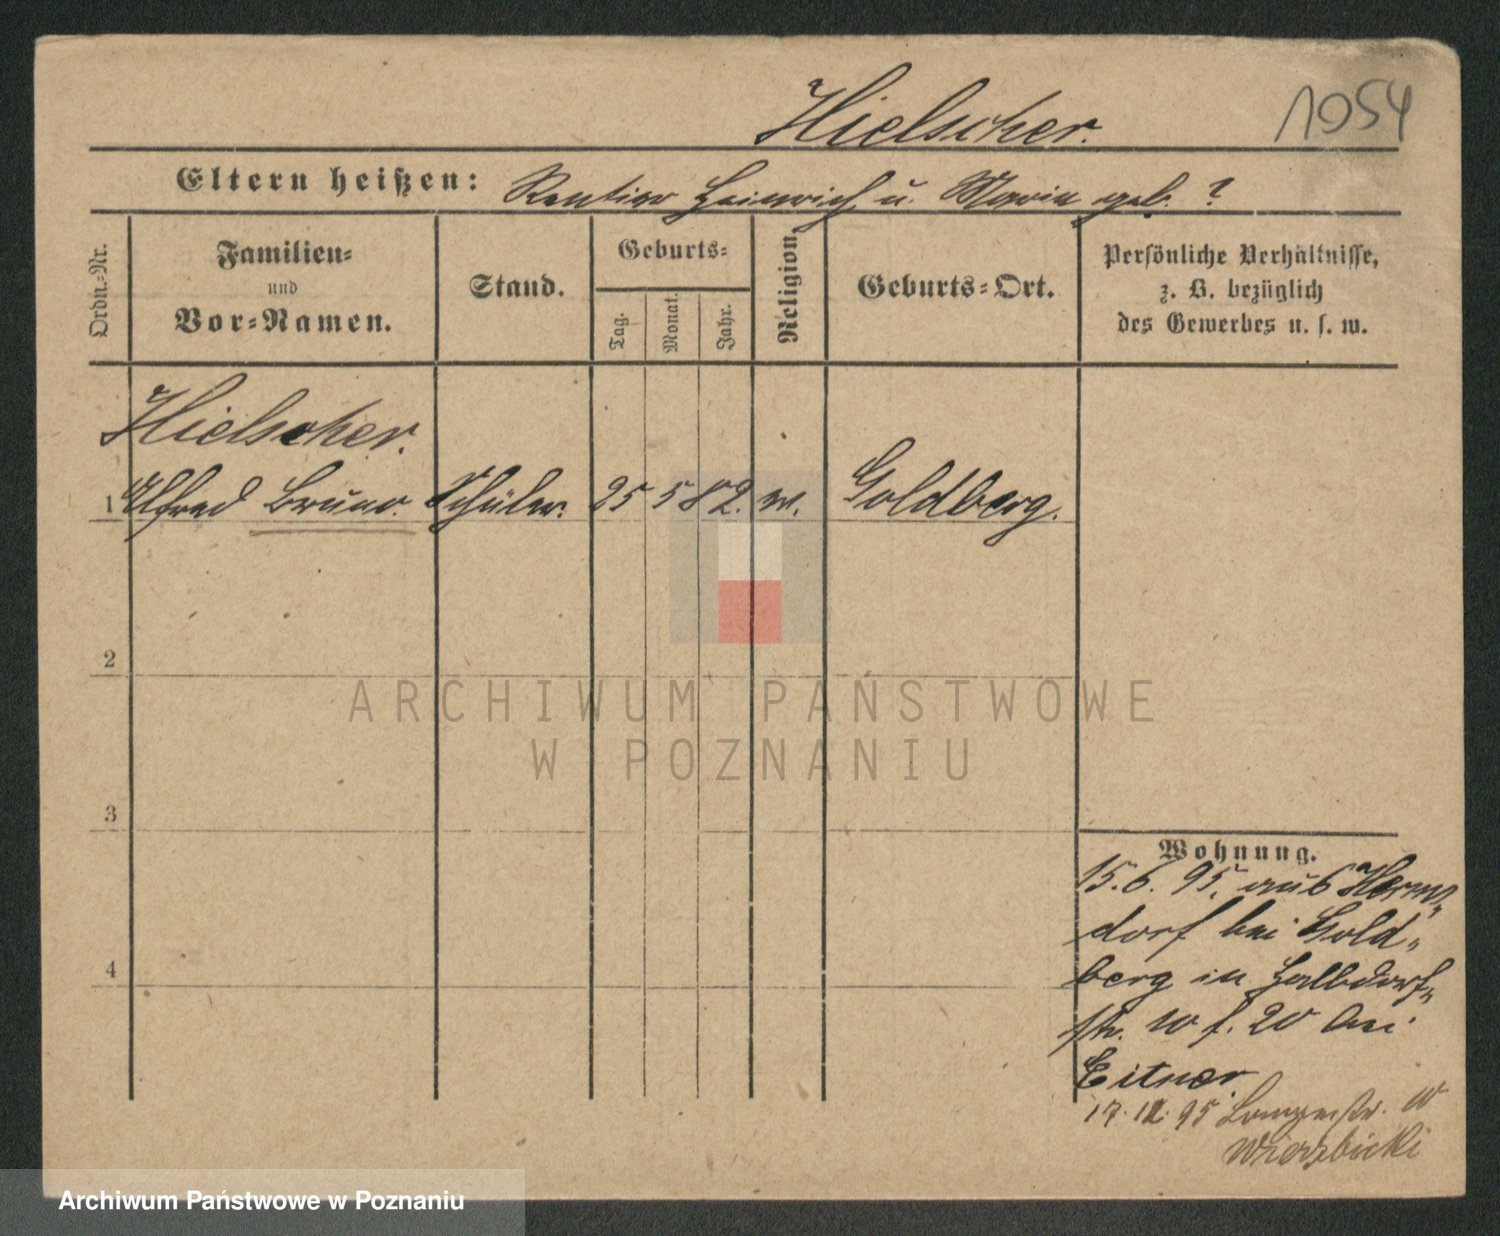 Hielscher.
1054
Eltern heißen: Rentier Heinrich u. Maria geb. ?
Ordn.-Nr.
Familien-
und
Vor-Namen.
Stand.
Geburts-
Tag.
Monat.
Jahr.
Religion.
Geburts-Ort.
Persönliche Verhältnisse,
z. B. bezüglich
des Gewerbes u. s. w.
Hielscher.
1 Alfred Bruno. Schüler. 25 5 82. Goldberg.
2
3
4
ARCHIWUM PAŃSTWOWE
W POZNANIU
Wohnung.
15.6.95. aus Herms-
dorf bei Gold-
berg in Halbdorf-
str. 10 f. 20 bei
Eitner.
17.12.95
Wierzbicki
Archiwum Państwowe w Poznaniu